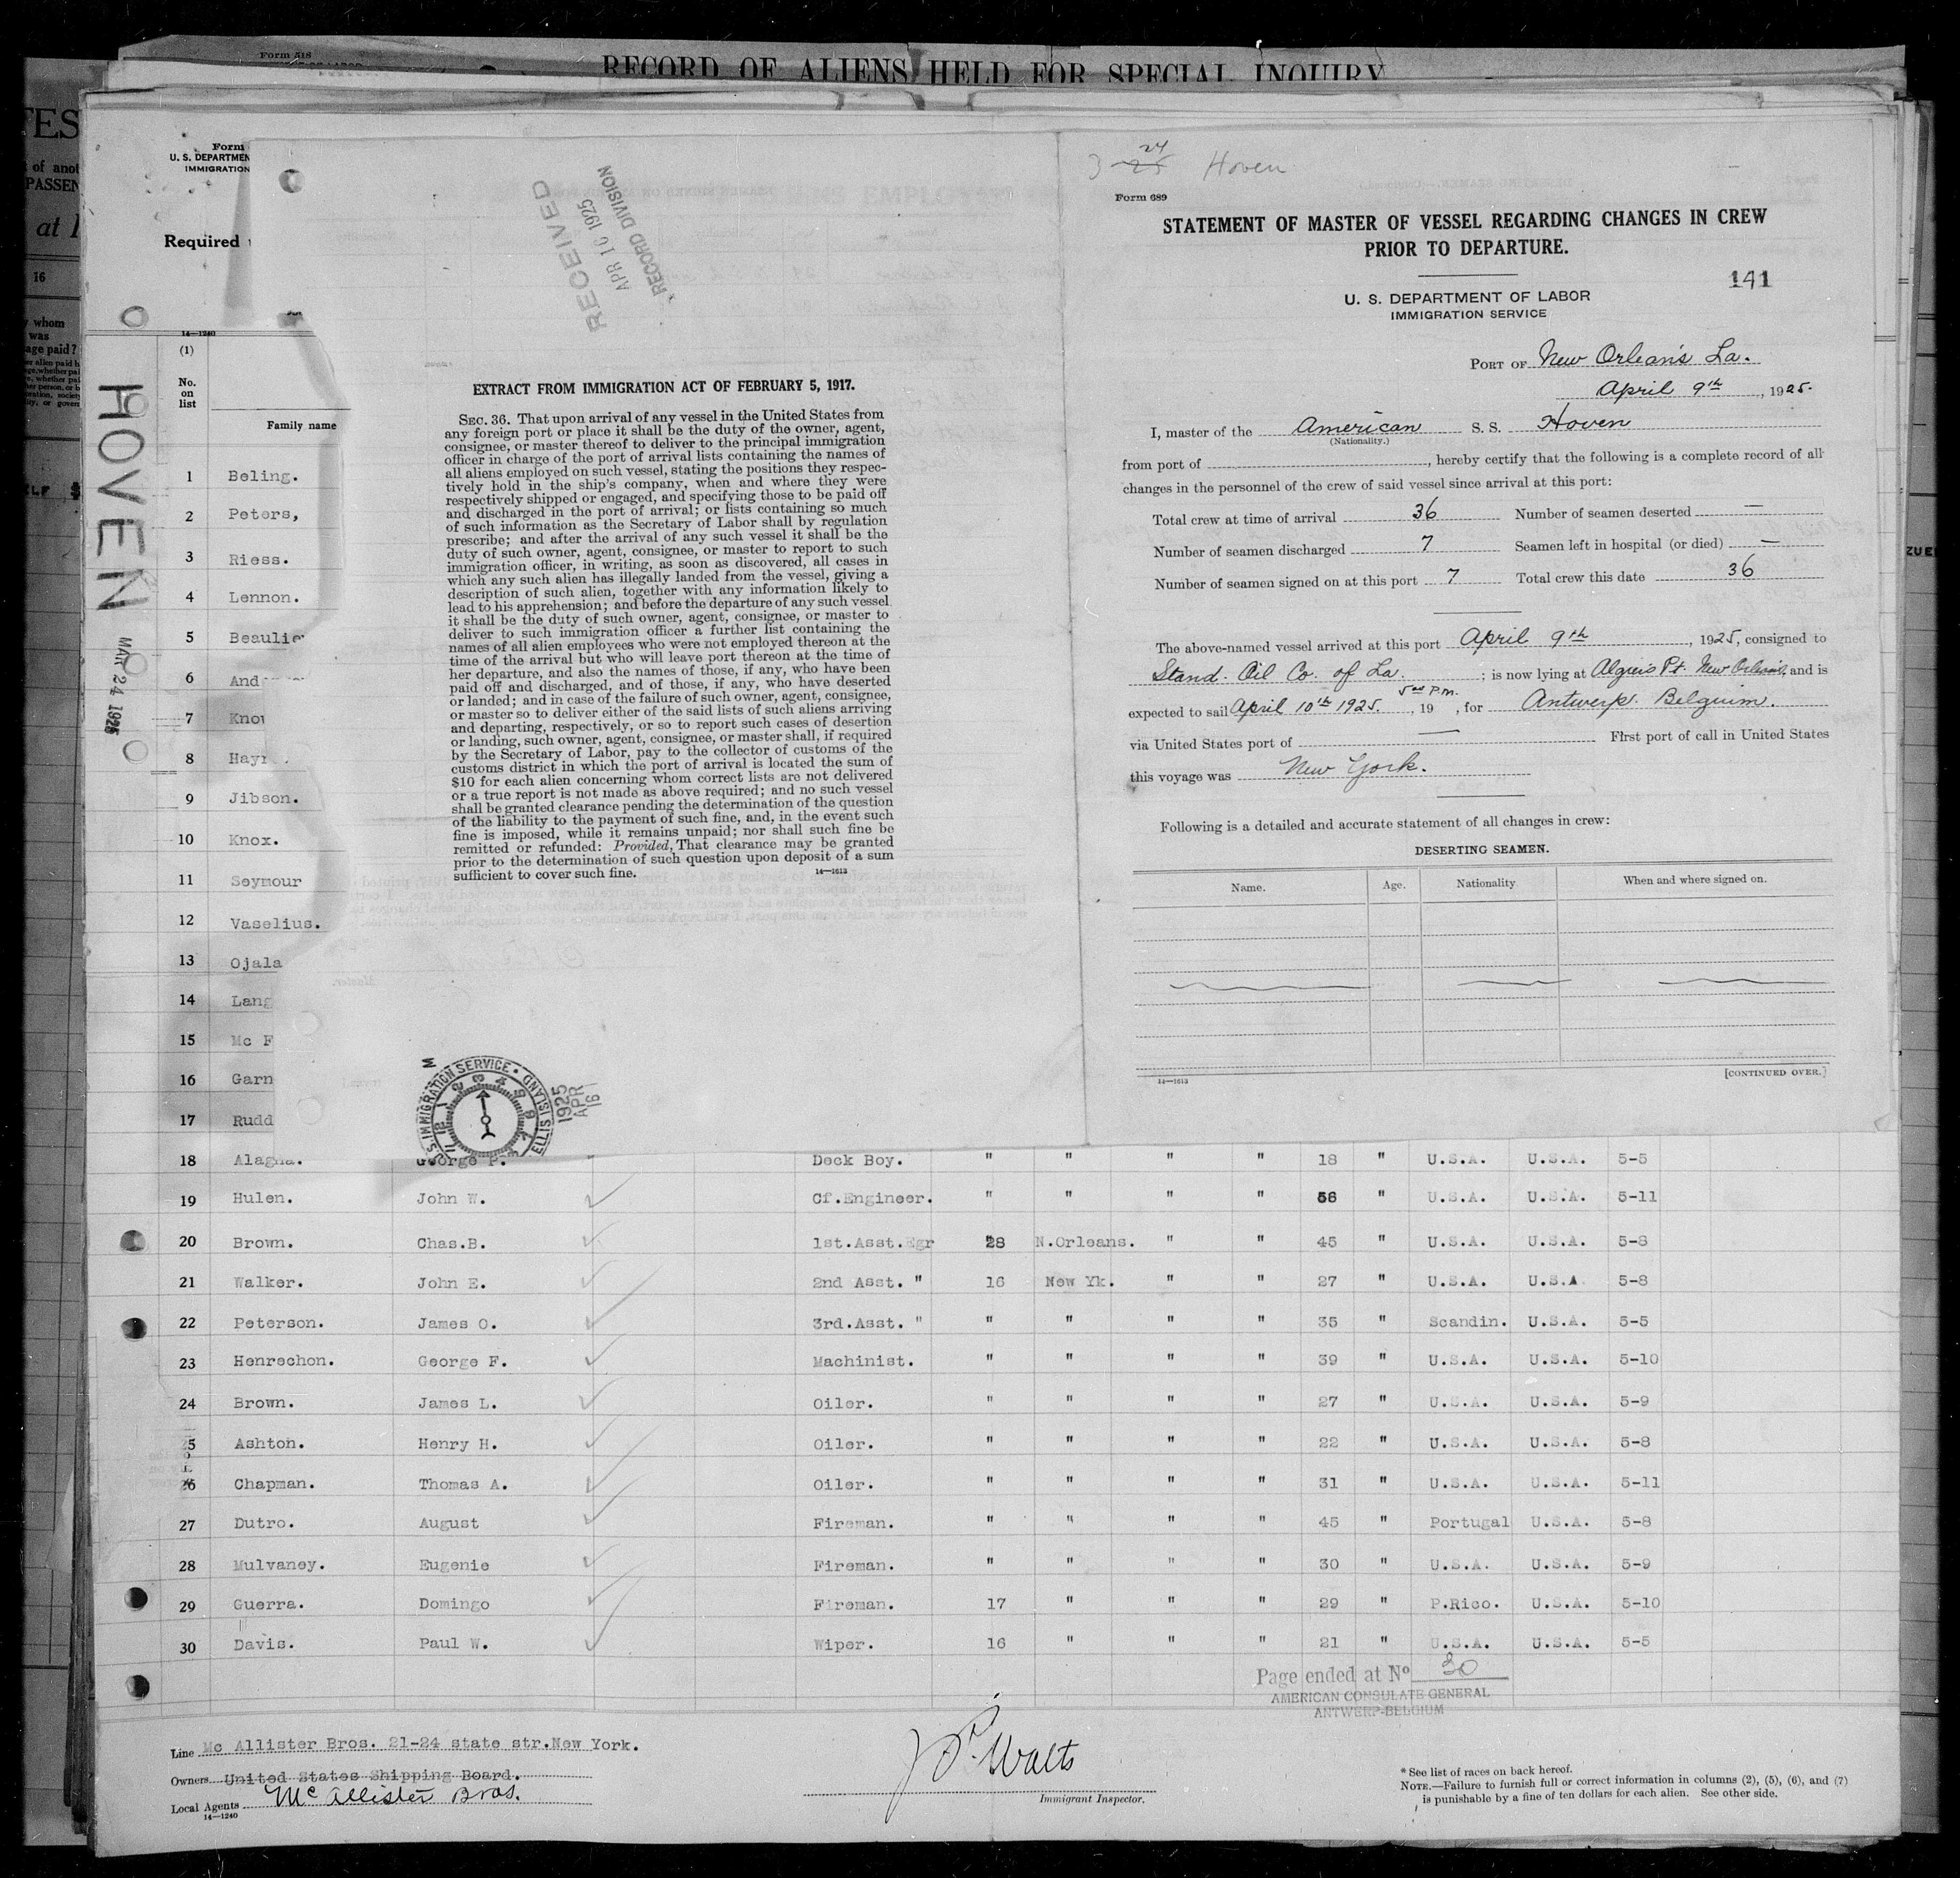 Form 518
RECORD OF ALIENS HELD FOR SPECIAL INQUIRY
TES
of anot
PASSEN
at
16
whom
was
age paid?
Form
U. S. DEPARTMEN
IMMIGRATION
Required
14—1240
(1)
No.
on
list
Family name
HOVEN
MAR 24 1925
1 Beling.
2 Peters,
3 Riess.
4 Lennon.
5 Beaulie
6 And
7 Kno
8 Hay
9 Jibson.
10 Knox.
11 Seymour
12 Vaselius.
13 Ojala
14 Lang
15 Mc F
16 Garn
17 Rudd
RECEIVED
APR 16 1925
RECORD DIVISION
EXTRACT FROM IMMIGRATION ACT OF FEBRUARY 5, 1917.
SEC. 36. That upon arrival of any vessel in the United States from
any foreign port or place it shall be the duty of the owner, agent,
consignee, or master thereof to deliver to the principal immigration
officer in charge of the port of arrival lists containing the names of
all aliens employed on such vessel, stating the positions they respec-
tively hold in the ship's company, when and where they were
respectively shipped or engaged, and specifying those to be paid off
and discharged in the port of arrival; or lists containing so much
of such information as the Secretary of Labor shall by regulation
prescribe; and after the arrival of any such vessel it shall be the
duty of such owner, agent, consignee, or master to report to such
immigration officer, in writing, as soon as discovered, all cases in
which any such alien has illegally landed from the vessel, giving a
description of such alien, together with any information likely to
lead to his apprehension; and before the departure of any such vessel
it shall be the duty of such owner, agent, consignee, or master to
deliver to such immigration officer a further list containing the
names of all alien employees who were not employed thereon at the
time of the arrival but who will leave port thereon at the time of
her departure, and also the names of those, if any, who have been
paid off and discharged, and of those, if any, who have deserted
or landed; and in case of the failure of such owner, agent, consignee,
or master so to deliver either of the said lists of such aliens arriving
and departing, respectively, or so to report such cases of desertion
or landing, such owner, agent, consignee, or master shall, if required
by the Secretary of Labor, pay to the collector of customs of the
customs district in which the port of arrival is located the sum of
$10 for each alien concerning whom correct lists are not delivered
or a true report is not made as above required; and no such vessel
shall be granted clearance pending the determination of the question
of the liability to the payment of such fine, and, in the event such
fine is imposed, while it remains unpaid; nor shall such fine be
remitted or refunded: Provided, That clearance may be granted
prior to the determination of such question upon deposit of a sum
sufficient to cover such fine.
14—1613
S. IMMIGRATION SERVICE · ELLIS ISLAND
1925
APR
16
3 24 25 Hoven
Form 689
STATEMENT OF MASTER OF VESSEL REGARDING CHANGES IN CREW
PRIOR TO DEPARTURE.
141
U. S. DEPARTMENT OF LABOR
IMMIGRATION SERVICE
PORT OF New Orleans La.
April 9th, 1925.
I, master of the American S. S. Hoven
(Nationality.)
from port of , hereby certify that the following is a complete record of all
changes in the personnel of the crew of said vessel since arrival at this port:
Total crew at time of arrival 36 Number of seamen deserted —
Number of seamen discharged 7 Seamen left in hospital (or died) —
Number of seamen signed on at this port 7 Total crew this date 36
The above-named vessel arrived at this port April 9th, 1925, consigned to
Stand. Oil Co. of La. ; is now lying at Algiers Pt. New Orleans, and is
5 00 P.M.
expected to sail April 10th 1925. , 19 , for Antwerp. Belguim.
via United States port of — First port of call in United States
this voyage was New York.
Following is a detailed and accurate statement of all changes in crew:
DESERTING SEAMEN.
Name. Age. Nationality When and where signed on.
14—1613
[CONTINUED OVER.]
ZUE
18 Alagna. George P. Deck Boy. " " " " 18 " U.S.A. U.S.A. 5-5
19 Hulen. John W. Cf.Engineer. " " " " 56 " U.S.A. U.S.A. 5-11
20 Brown. Chas.B. 1st.Asst.Egr 28 N.Orleans. " " 45 " U.S.A. U.S.A. 5-8
21 Walker. John E. 2nd Asst. " 16 New Yk. " " 27 " U.S.A. U.S.A 5-8
22 Peterson. James O. 3rd.Asst. " " " " " 35 " Scandin. U.S.A. 5-5
23 Henrechon. George F. Machinist. " " " " 39 " U.S.A. U.S.A. 5-10
24 Brown. James L. Oiler. " " " " 27 " U.S.A. U.S.A. 5-9
25 Ashton. Henry H. Oiler. " " " " 22 " U.S.A. U.S.A. 5-8
26 Chapman. Thomas A. Oiler. " " " " 31 " U.S.A. U.S.A. 5-11
27 Dutro. August Fireman. " " " " 45 " Portugal U.S.A. 5-8
28 Mulvaney. Eugenie Fireman. " " " " 30 " U.S.A. U.S.A. 5-9
29 Guerra. Domingo Fireman. 17 " " " 29 " P.Rico. U.S.A. 5-10
30 Davis. Paul W. Wiper. 16 " " " 21 " U.S.A. U.S.A. 5-5
Page ended at No 30
AMERICAN CONSULATE GENERAL
ANTWERP-BELGIUM
Line Mc Allister Bros. 21-24 state str.New York.
Owners United States Shipping Board.
Local Agents McAllister Bros.
14—1240
Walts
Immigrant Inspector.
* See list of races on back hereof.
NOTE.—Failure to furnish full or correct information in columns (2), (5), (6), and (7)
is punishable by a fine of ten dollars for each alien. See other side.